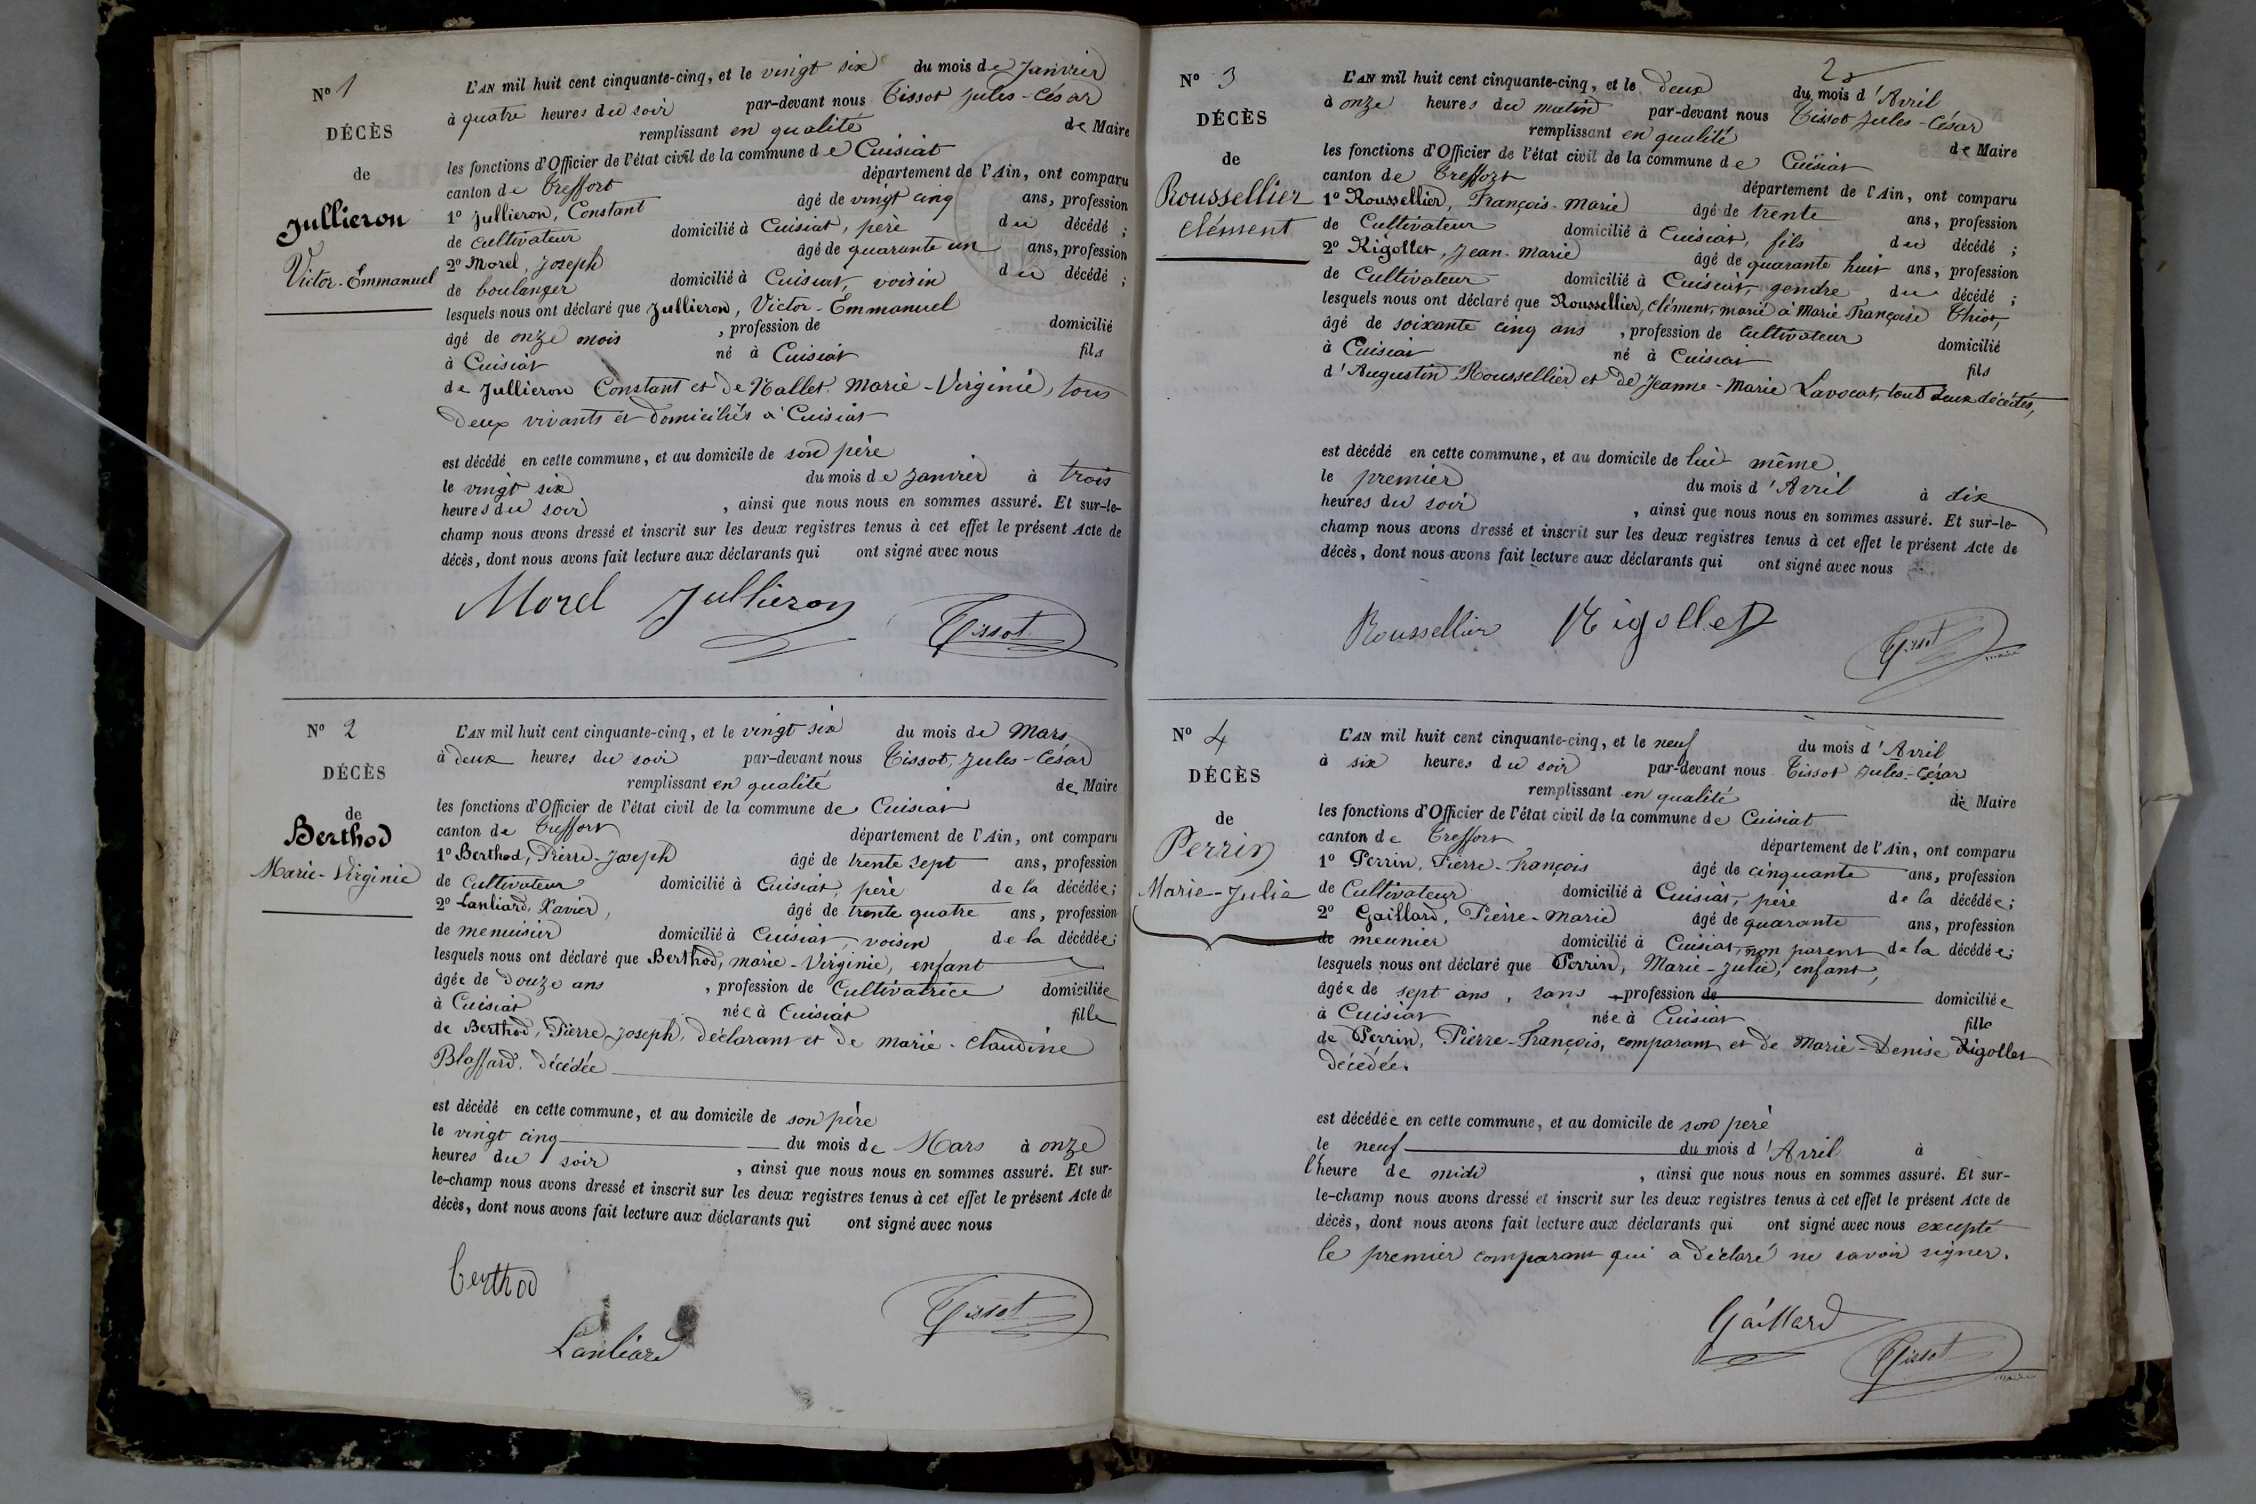 N° 1
DÉCÈS
de
Jullieron
Victor-Emmanuel
L'AN mil huit cent cinquante-cinq, et le vingt six du mois de Janvier
à quatre heures du soir par-devant nous Tissot Jules-César
remplissant en qualité de Maire
les fonctions d'Officier de l'état civil de la commune de Cuisiat
canton de Treffort département de l'Ain, ont comparu
1° Jullieron, Constant âgé de vingt cinq ans, profession
de cultivateur domicilié à Cuisiat, père du décédé ;
2° Morel, Joseph âgé de quarante un ans, profession
de boulanger domicilié à Cuisiat, voisin du décédé ;
lesquels nous ont déclaré que Jullieron, Victor-Emmanuel
âgé de onze mois , profession de domicilié
à Cuisiat né à Cuisiat fils
de Jullieron Constant et de Nallet Marie-Virginie, tous
deux vivants et domiciliés à Cuisiat
est décédé en cette commune, et au domicile de son père
le vingt six du mois de Janvier à trois
heures du soir , ainsi que nous nous en sommes assuré. Et sur-le-
champ nous avons dressé et inscrit sur les deux registres tenus à cet effet le présent Acte de
décès, dont nous avons fait lecture aux déclarants qui ont signé avec nous
Morel Jullieron Tissot
N° 2
DÉCÈS
de
Berthod
Marie-Virginie
L'AN mil huit cent cinquante-cinq, et le vingt six du mois de Mars
à deux heures du soir par-devant nous Tissot, Jules-César
remplissant en qualité de Maire
les fonctions d'Officier de l'état civil de la commune de Cuisiat
canton de Treffort département de l'Ain, ont comparu
1° Berthod, Pierre-Joseph âgé de trente sept ans, profession
de Cultivateur domicilié à Cuisiat, père de la décédée ;
2° Lanliard, Xavier, âgé de trente quatre ans, profession
de menuisier domicilié à Cuisiat, voisin de la décédée ;
lesquels nous ont déclaré que Berthod, marie-Virginie, enfant
âgée de douze ans , profession de Cultivatrice domiciliée
à Cuisiat née à Cuisiat fille
de Berthod, Pierre-Joseph, déclarant et de marie-Claudine
Blaffard, décédée
est décédé en cette commune, et au domicile de son père
le vingt cinq du mois de Mars à onze
heures du soir , ainsi que nous nous en sommes assuré. Et sur-
le-champ nous avons dressé et inscrit sur les deux registres tenus à cet effet le présent Acte de
décès, dont nous avons fait lecture aux déclarants qui ont signé avec nous
berthod
Lanliard
Tissot
2
N° 3
DÉCÈS
de
Roussellier
Clément
L'AN mil huit cent cinquante-cinq, et le deux du mois d'Avril
à onze heures du matin par-devant nous Tissot Jules-César
remplissant en qualité de Maire
les fonctions d'Officier de l'état civil de la commune de Cuisiat
canton de Treffort département de l'Ain, ont comparu
1° Roussellier, François-Marie âgé de trente ans, profession
de Cultivateur domicilié à Cuisiat, fils du décédé ;
2° Rigollet, Jean-Marie âgé de quarante huit ans, profession
de Cultivateur domicilié à Cuisiat, gendre du décédé ;
lesquels nous ont déclaré que Roussellier, Clément, marié à Marie Françoise Thiot,
âgé de soixante cinq ans , profession de Cultivateur domicilié
à Cuisiat né à Cuisiat fils
d'Augustin Roussellier et de Jeanne-Marie Lavocat, tout deux décédés,
est décédé en cette commune, et au domicile de lui même
le premier du mois d'Avril à dix
heures du soir , ainsi que nous nous en sommes assuré. Et sur-le-
champ nous avons dressé et inscrit sur les deux registres tenus à cet effet le présent Acte de
décès, dont nous avons fait lecture aux déclarants qui ont signé avec nous
Roussellier Rigollet Tissot
maire
N° 4
DÉCÈS
de
Perrin
Marie-Julie
L'AN mil huit cent cinquante-cinq, et le neuf du mois d'Avril
à six heures du soir par-devant nous Tissot Jules-César
remplissant en qualité de Maire
les fonctions d'Officier de l'état civil de la commune de Cuisiat
canton de Treffort département de l'Ain, ont comparu
1° Perrin, Pierre-François âgé de cinquante ans, profession
de Cultivateur domicilié à Cuisiat, père de la décédée ;
2° Gaillard, Pierre-Marie âgé de quarante ans, profession
de meunier domicilié à Cuisiat, non parent de la décédée ;
lesquels nous ont déclaré que Perrin, Marie-Julie, enfant,
âgée de sept ans, sans profession de domiciliée
à Cuisiat née à Cuisiat fille
de Perrin, Pierre-François, comparant et de Marie-Denise Rigollet
décédée.
est décédée en cette commune, et au domicile de son père
le neuf du mois d'Avril à
l'heure de midi , ainsi que nous nous en sommes assuré. Et sur-
le-champ nous avons dressé et inscrit sur les deux registres tenus à cet effet le présent Acte de
décès, dont nous avons fait lecture aux déclarants qui ont signé avec nous excepté
le premier comparant qui a déclaré ne savoir signer.
Gaillard
Tissot
maire